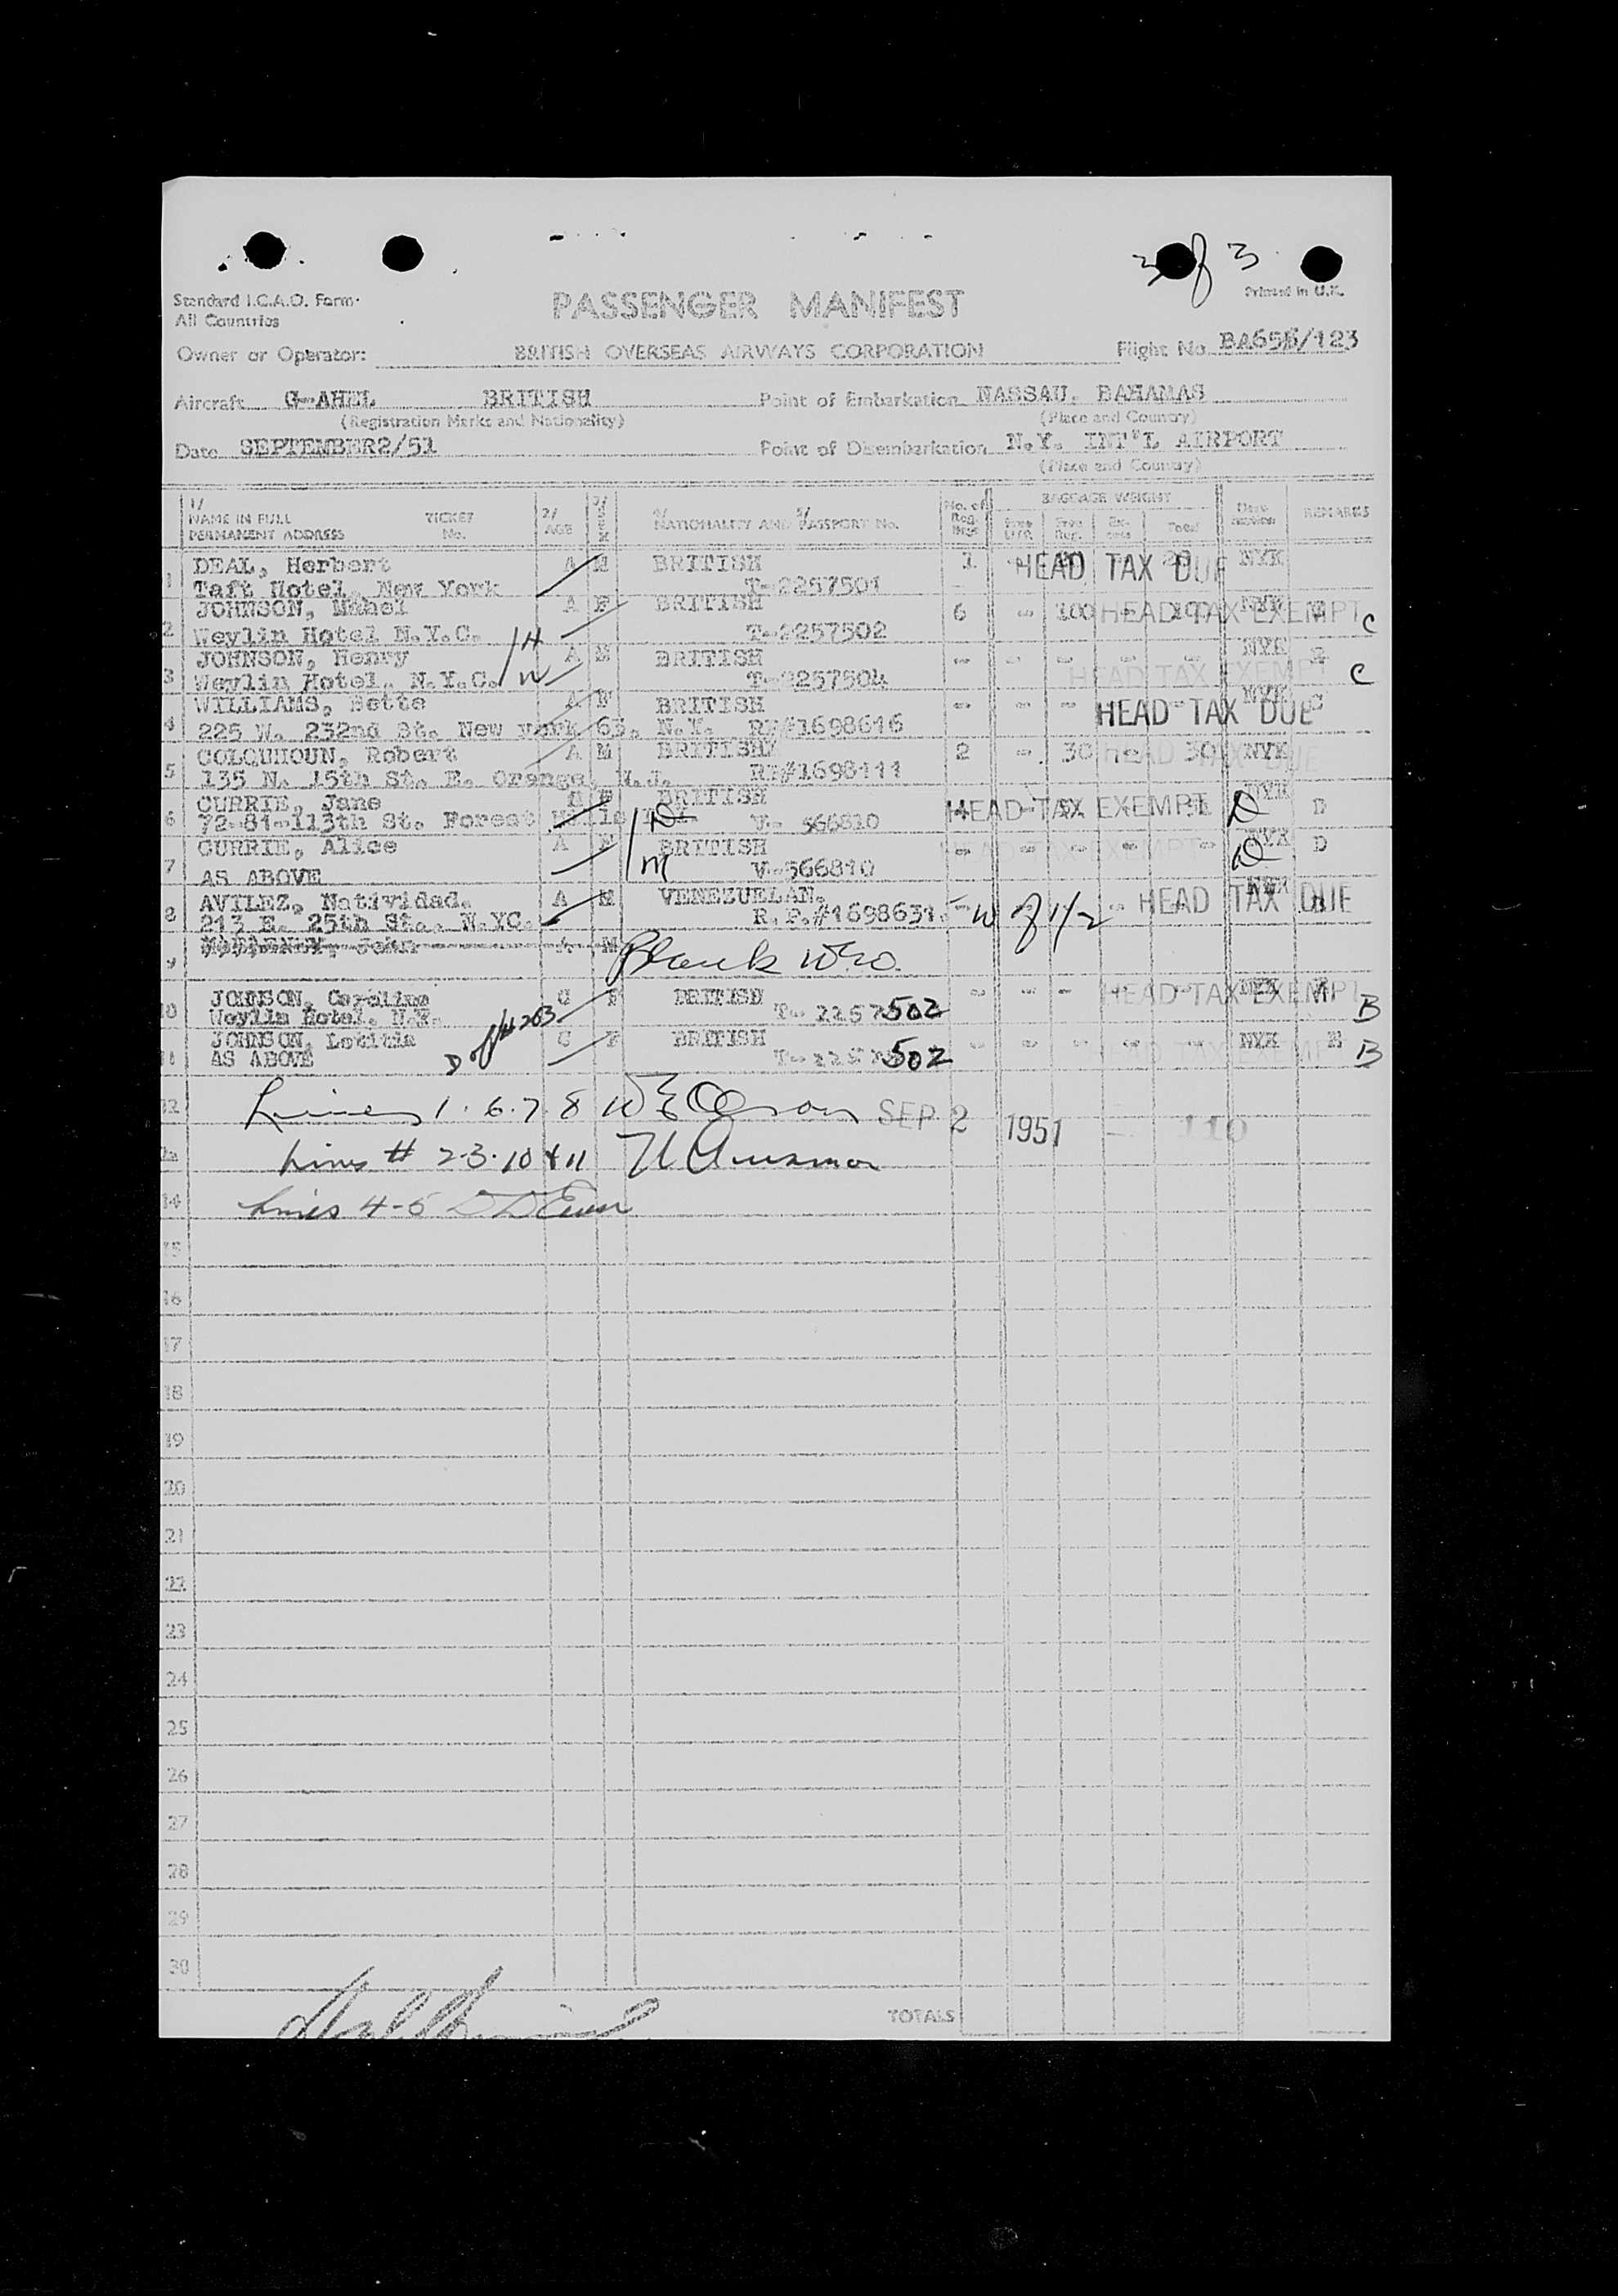 3 of 3
Standard I.C.A.O. Form.
All Countries
PASSENGER MANIFEST
Printed in U.K.
Owner or Operator: BRITISH OVERSEAS AIRWAYS CORPORATION Flight No. /123
Aircraft G-AHEL BRITISH Point of Embarkation NASSAU, BAHAMAS
(Registration Marks and Nationality) (Place and Country)
Date SEPTEMBER2/51 Point of Disembarkation N.Y. INT'L AIRPORT
(Place and Country)
1/ NAME IN FULL PERMANENT ADDRESS TICKET No. 2/ AGE 3/ SEX 4/ NATIONALITY AND 5/ PASSPORT No. No. of BAGGAGE WEIGHT Total REMARKS
1 DEAL, Herbert A M BRITISH 1 HEAD TAX DUE NYK
Taft Hotel, New York T-2257501
2 JOHNSON, Mabel A F BRITISH 6 - 100 - HEAD TAX EXEMPT NYK C
Weylin Hotel N.Y.C. H T-2257502
3 JOHNSON, Henry A M BRITISH - - - - - NYK
Weylin Hotel. N.Y.C. W T-2257504 HEAD TAX EXEMPT C
4 WILLIAMS, Bette A F BRITISH - - - HEAD TAX DUE NYK
225 W. 232nd St. New York 63, N.Y. RP#1698616
5 COLQUHOUN, Robert A M BRITISH 2 - 30 - 30 NYK HEAD TAX DUE
135 N. 15th St. E. Orange, N.J. RP#1698111
6 CURRIE, Jane BRITISH HEAD TAX EXEMPT NYK D D
72-81-113th St. Forest Hills D V- 566810
7 CURRIE, Alice A F BRITISH HEAD TAX EXEMPT NYK D D
AS ABOVE M V-566810
8 AVILEZ, Natividad. A M VENEZUELAN. - W of 1/2 - HEAD TAX DUE NYK
213 E. 25th St., N.YC. R.P.#1698631.
9 John A M Blank WEO
10 JOHNSON, Caroline C F BRITISH - - - HEAD TAX EXEMPT NYK
Weylin Hotel. N.Y. T- 2257502 B
D of #2&3
11 JOHNSON, Letitia C F BRITISH - - - - - NYK E
AS ABOVE T-2257502 HEAD TAX EXEMPT B
12 Lines 1. 6. 7. 8 SEP 2 1951 110
Lines # 2-3-10 & 11
14 Lines 4-5
15
16
17
18
19
20
21
22
23
24
25
26
27
28
29
30
TOTALS